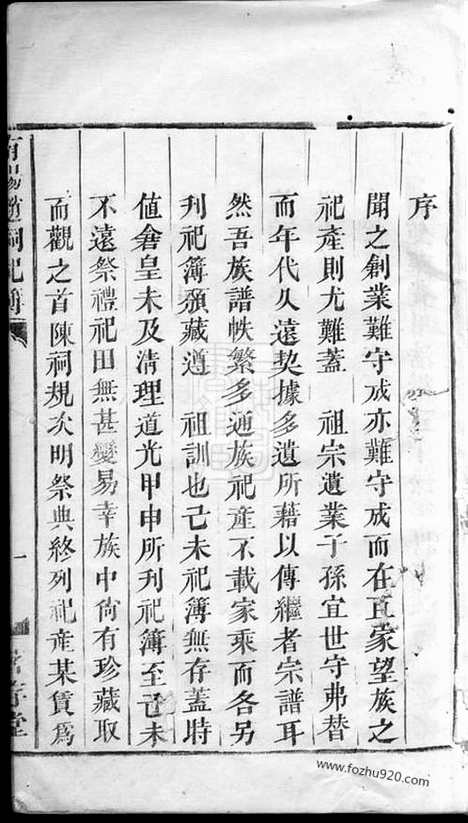 序
聞之創業難守成亦難守成而在巨家望族之
祀產則尤難蓋 祖宗遺業子孫宜世守弗替
而年代久遠契據多遺所藉以傳繼者宗譜耳
然吾族譜帙繁多通族祀產不載家乘而各另
刋祀簿頒藏遵 祖訓也己未祀簿無存蓋時
值倉皇未及清理道光甲申所刋祀簿至己未
不遠祭禮祀田無甚變易幸族中尚有珍藏取
而觀之首陳祠規次明祭典終列祀產某賃為
祠祀簿
一
堂
www.fozhu920.com